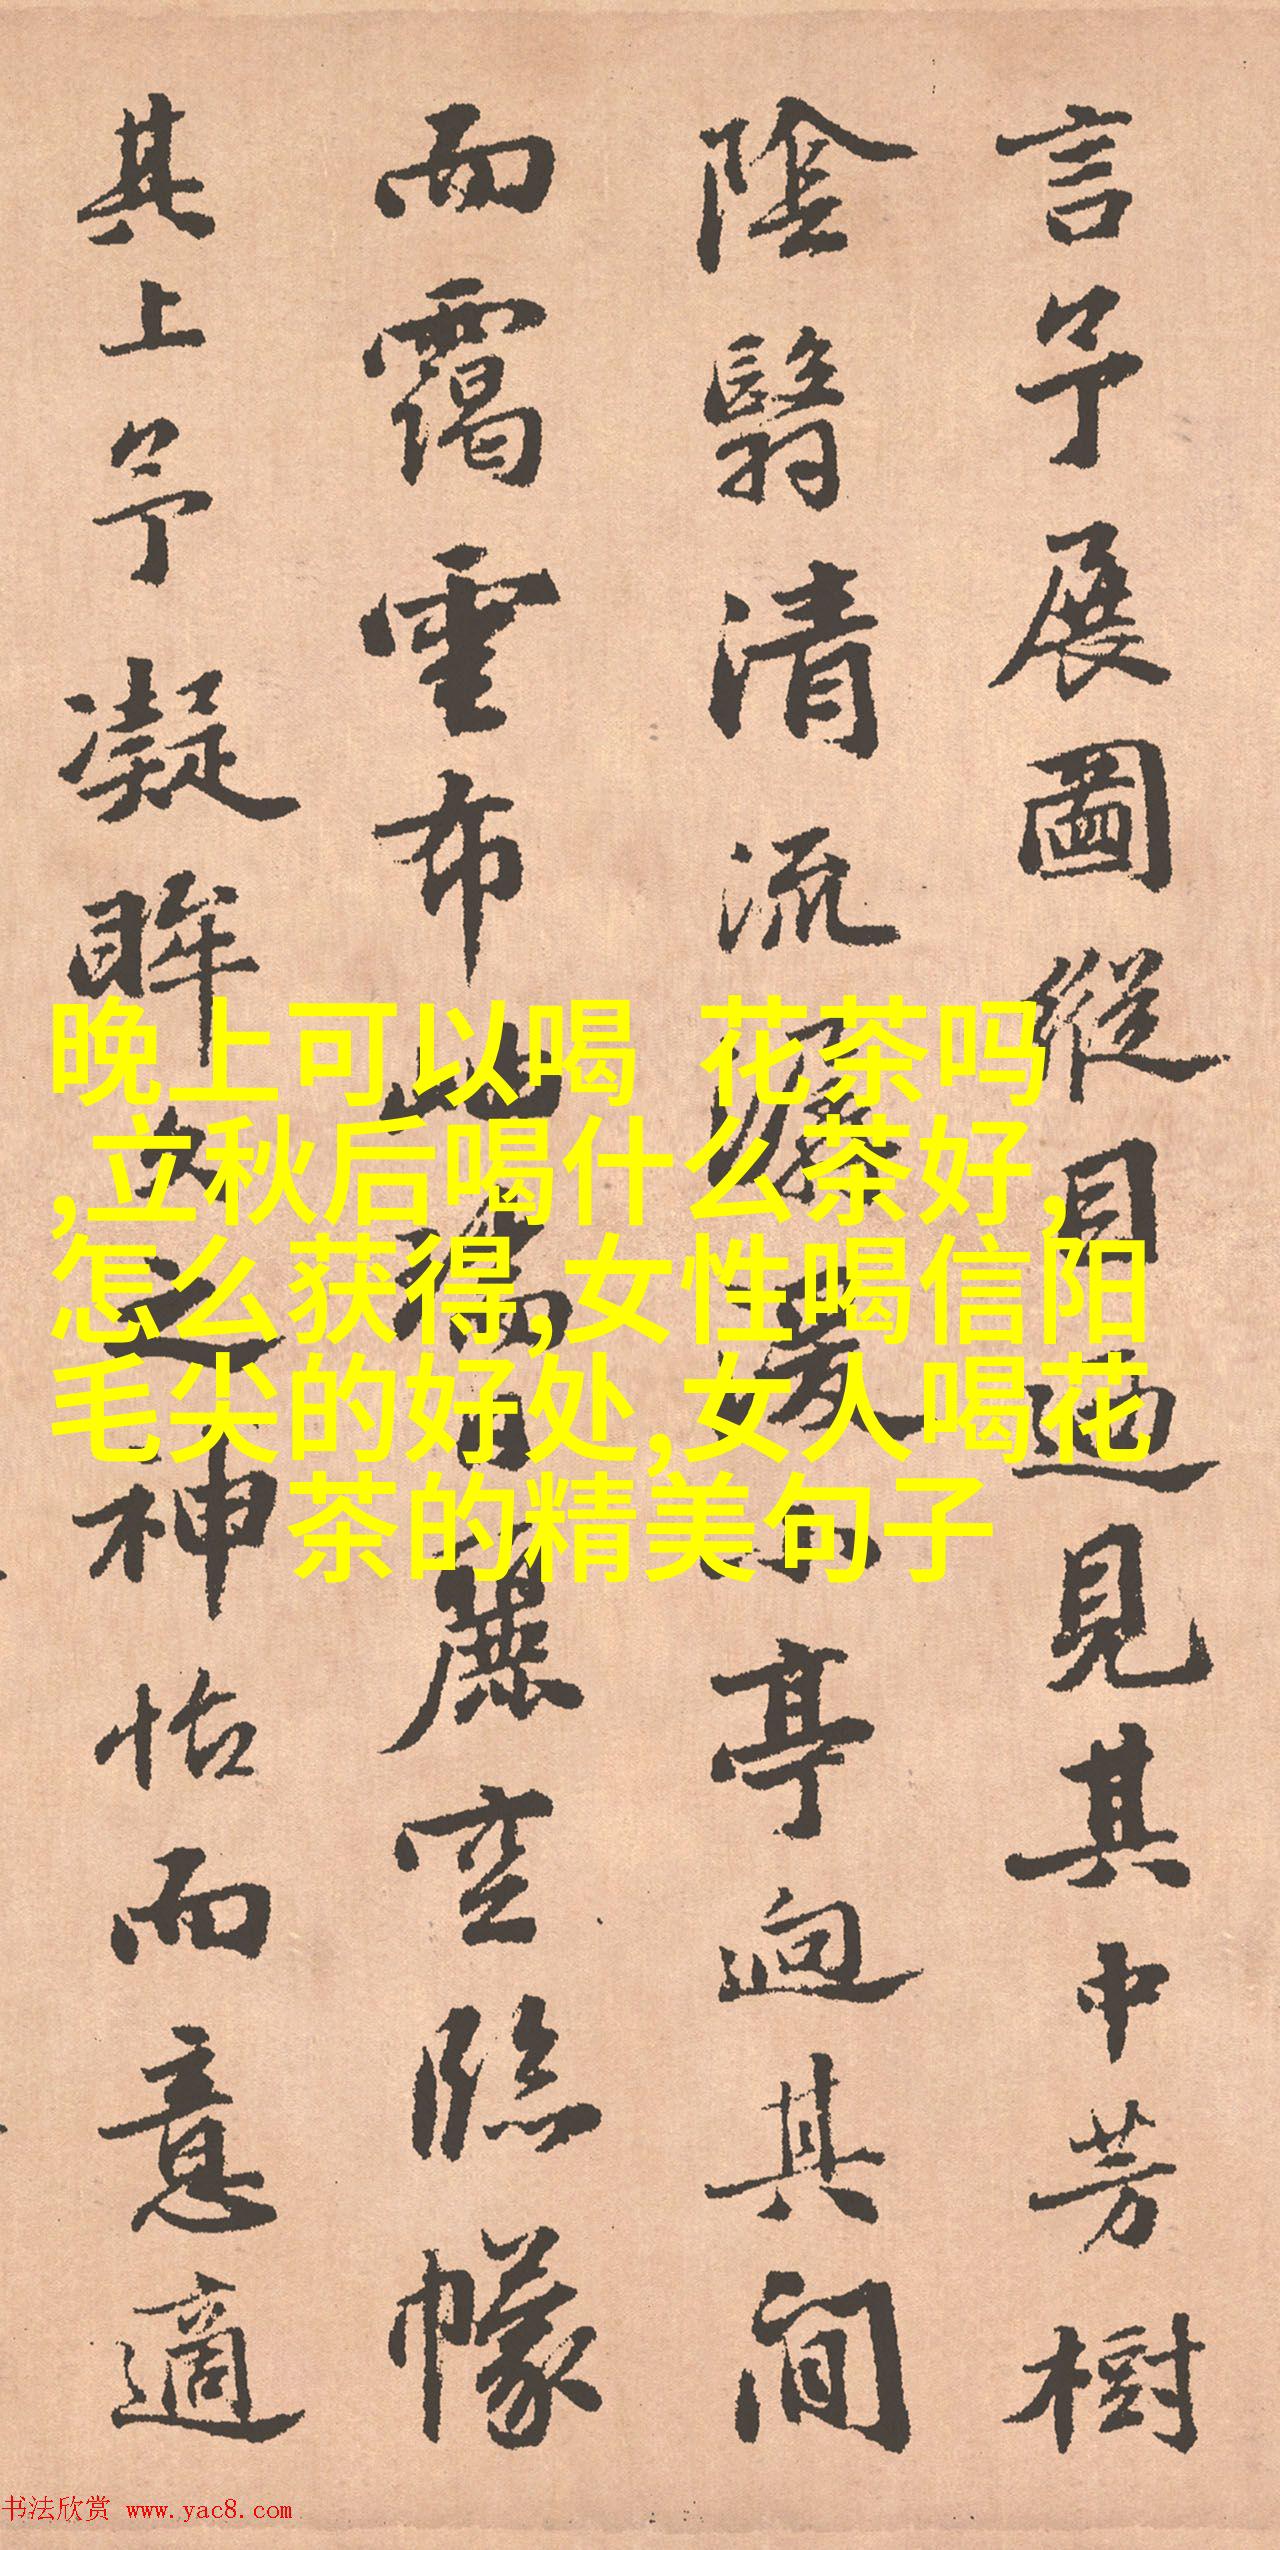 言予展圖縱目迺見其中芳樹
陰翳清流潺湲小亭迥其間
而靄布日麗空臨幪
其上予凝眸久之神怡而意適
晚上可以喝 花茶吗
,立秋后喝什么茶好,
怎么获得,女性喝信阳
毛尖的好处,女人喝花
茶的精美句子
书法欣赏 www.yac8.com